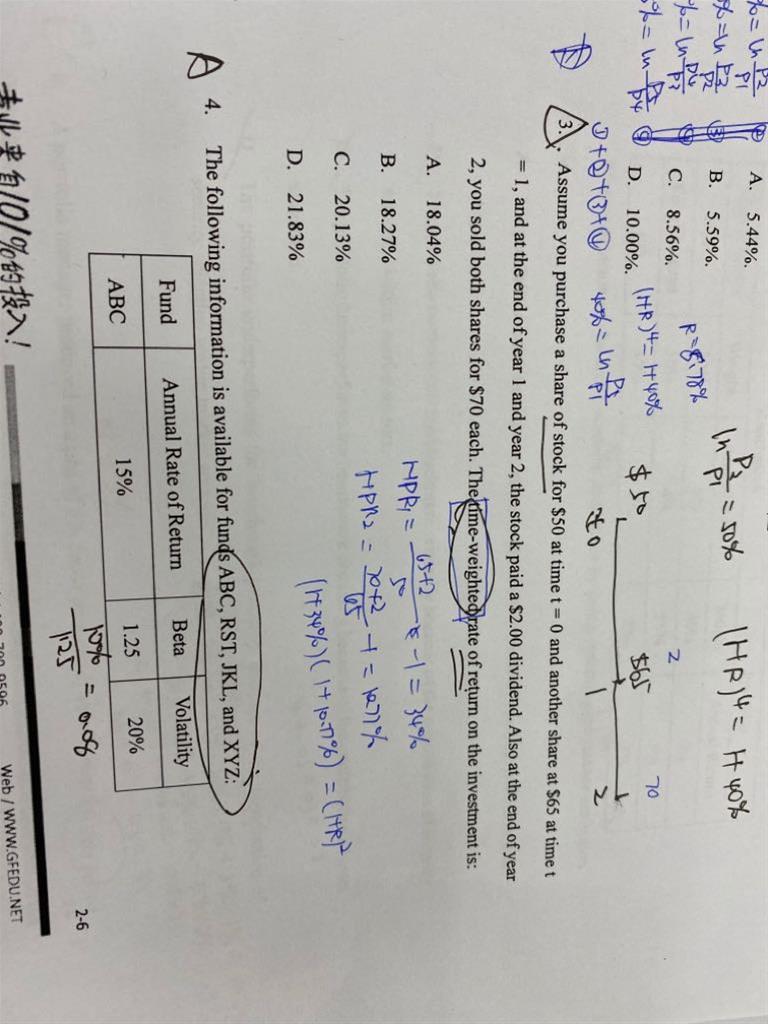 A. 5.44%.
B. 5.59%.
C. 8.56%.
D. 10.00%.
ln P3/P1 = 50%
(1+R)^4 = 1+40%
(1+R)^4 = 1+40%
R = 8.78%
①+②+③+④ 40% = ln P5/P1
$50 $65 70
2
t=0 1 2
D
3. Assume you purchase a share of stock for $50 at time t = 0 and another share at $65 at time t
= 1, and at the end of year 1 and year 2, the stock paid a $2.00 dividend. Also at the end of year
2, you sold both shares for $70 each. The time-weighted rate of return on the investment is:
A. 18.04%
B. 18.27%
C. 20.13%
D. 21.83%
HPR1 = 65+2/50 - 1 = 34%
HPR2 = 70+2/65 - 1 = 10.77%
(1+34%)(1+10.77%) = (1+R)^2
A
4. The following information is available for funds ABC, RST, JKL, and XYZ:
Fund Annual Rate of Return Beta Volatility
ABC 15% 1.25 20%
10%/1.25 = 0.08
2-6
专业来自101%的投入!
Web / WWW.GFEDU.NET